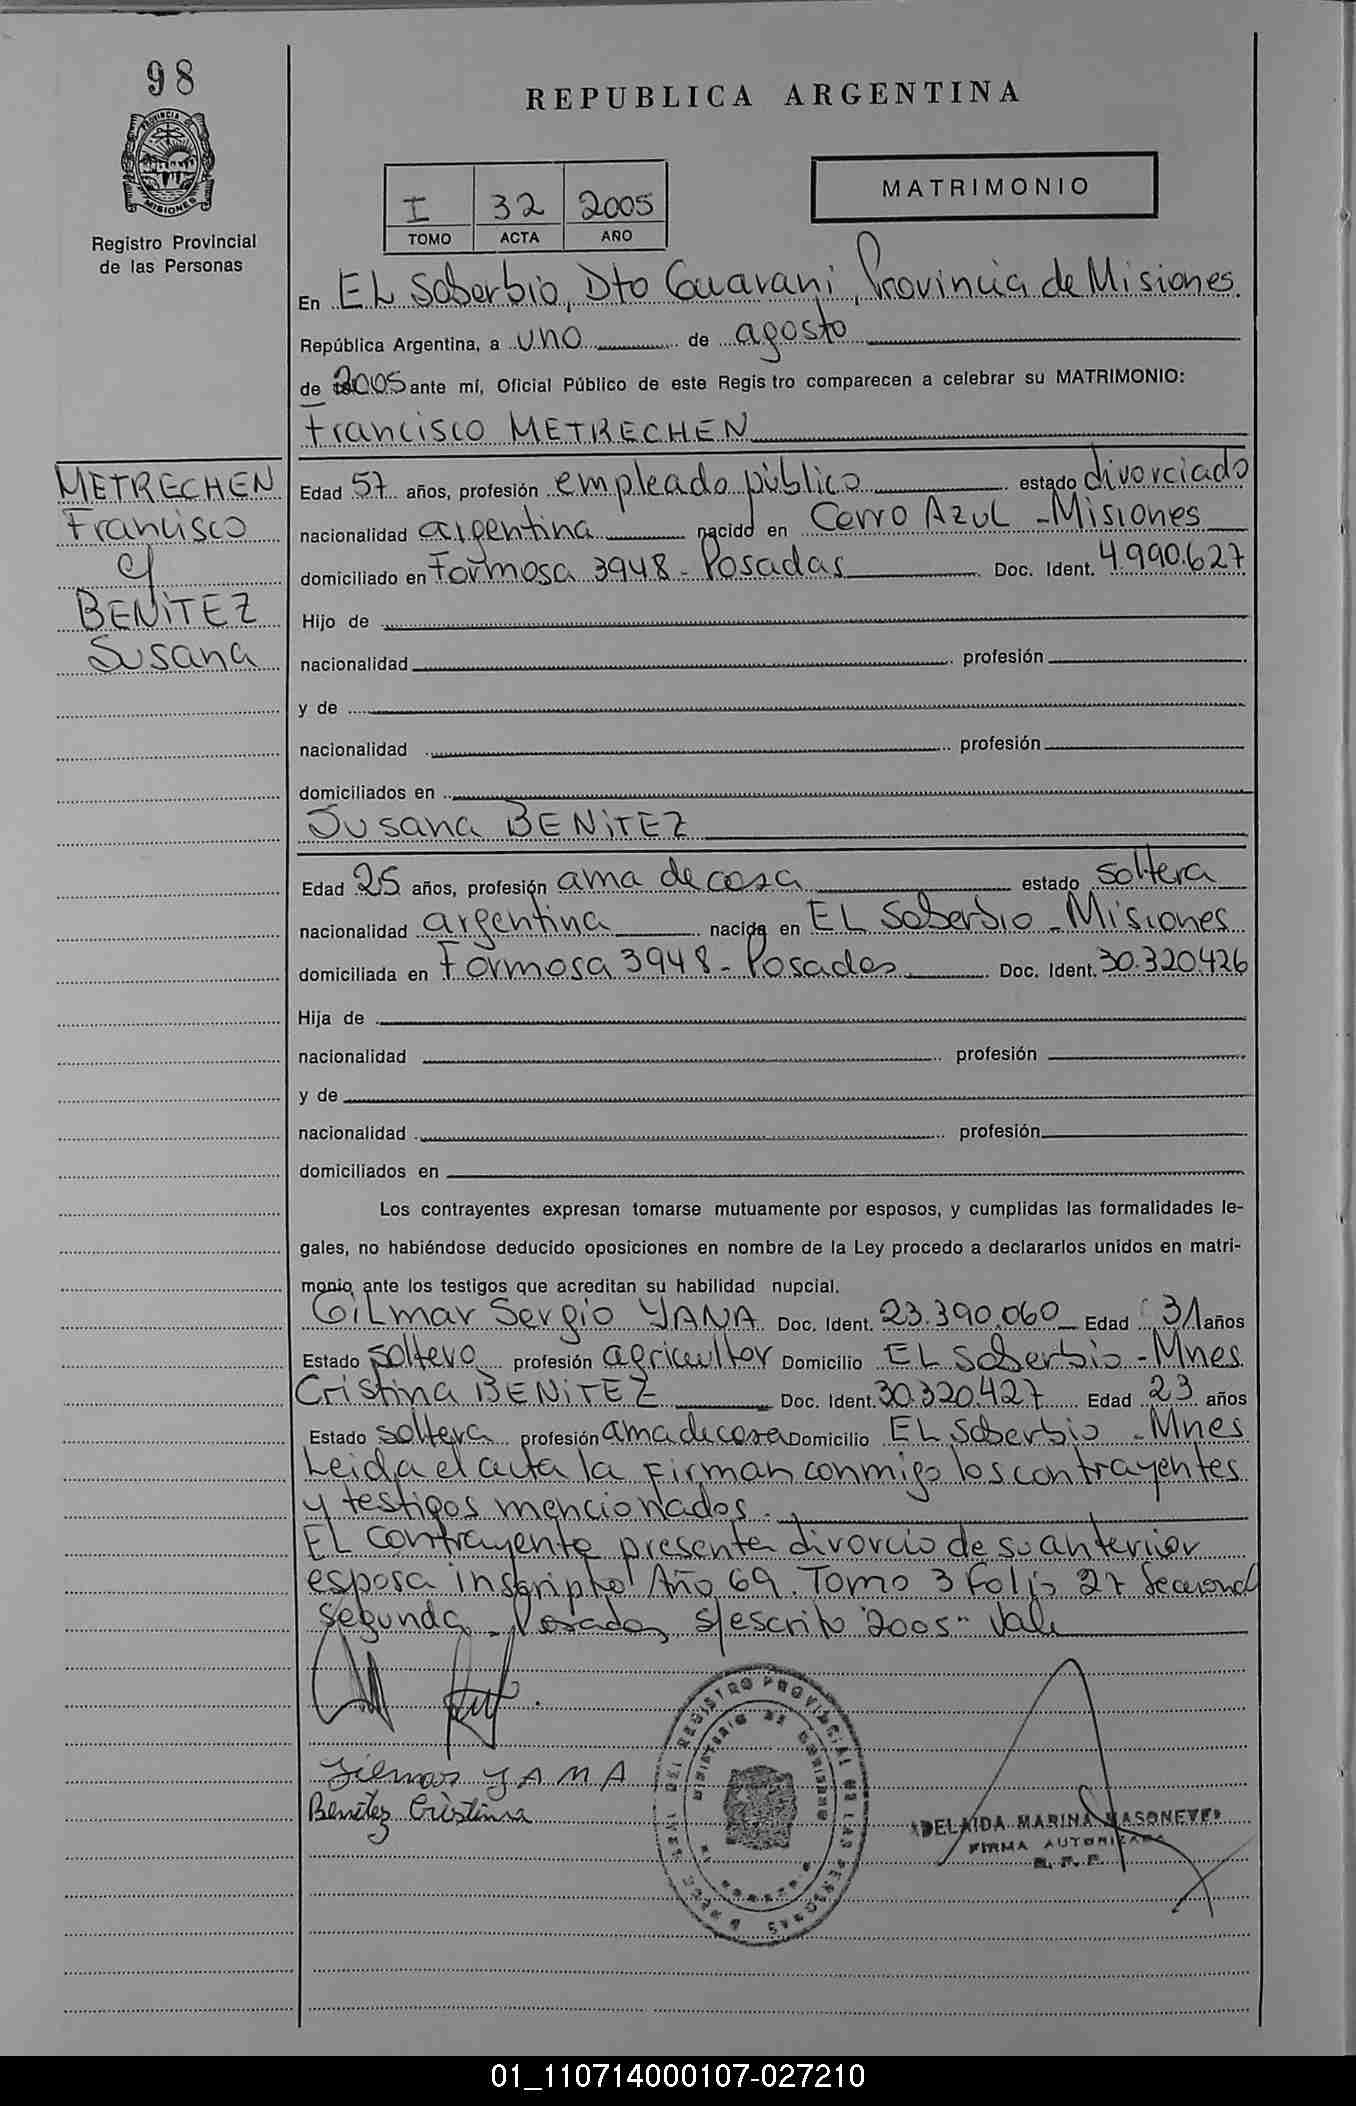 98
REPUBLICA ARGENTINA
PROVINCIA DE
MISIONES
Registro Provincial
de las Personas
I 32 2005
TOMO ACTA AÑO
MATRIMONIO
En EL Soberbio, Dto Guarani, Provincia de Misiones
República Argentina, a uno de agosto
de 2005 ante mí, Oficial Público de este Regis tro comparecen a celebrar su MATRIMONIO:
Francisco METRECHEN
METRECHEN
Francisco
c/
BENITEZ
Susana
Edad 57 años, profesión empleado público estado divorciado
nacionalidad argentina nacido en Cerro AZUL - Misiones
domiciliado en Formosa 3948 - Posadas Doc. Ident. 4.990.627
Hijo de
nacionalidad profesión
y de
nacionalidad profesión
domiciliados en
Susana BENITEZ
Edad 25 años, profesión ama de casa estado soltera
nacionalidad argentina nacida en EL Soberbio - Misiones
domiciliada en Formosa 3948 - Posadas Doc. Ident. 30.320.426
Hija de
nacionalidad profesión
y de
nacionalidad profesión
domiciliados en
Los contrayentes expresan tomarse mutuamente por esposos, y cumplidas las formalidades le-
gales, no habiéndose deducido oposiciones en nombre de la Ley procedo a declararlos unidos en matri-
monio ante los testigos que acreditan su habilidad nupcial.
GILmar Sergio YANA Doc. Ident. 23.390.060 Edad 31 años
Estado soltero profesión agricultor Domicilio EL Soberbio - Mnes
Cristina BENITEZ Doc. Ident. 30.320.427 Edad 23 años
Estado soltera profesión ama de casa Domicilio EL Soberbio - Mnes
Leida el acta la firman conmigo los contrayentes
y testigos mencionados.
EL contrayente presenta divorcio de su anterior
esposa inscripto Año 69. Tomo 3 Folio 27 Seccional
segunda - Posadas s/escrito "2005" Vale
YANA
Benitez Cristina
REGISTRO PROVINCIAL DE LAS PERSONAS
MINISTERIO DE GOBIERNO
ADELAIDA MARINA MASONEVE
FIRMA AUTORIZADA
R. P. P.
01_110714000107-027210